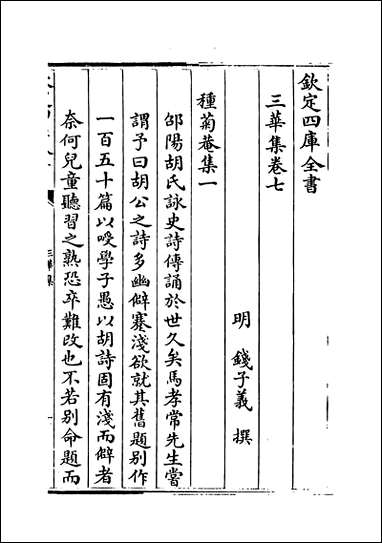 欽定四庫全書
三華集卷七
明 錢子義 撰
種菊菴集一
邵陽胡氏詠史詩傳誦於世久矣馬孝常先生嘗
謂予曰胡公之詩多幽僻蹇淺欲就其舊題别作
一百五十篇以嘜學子愚以胡詩固有淺而僻者
奈何兒童聽習之熟恐卒難改也不若别命題而
三華集